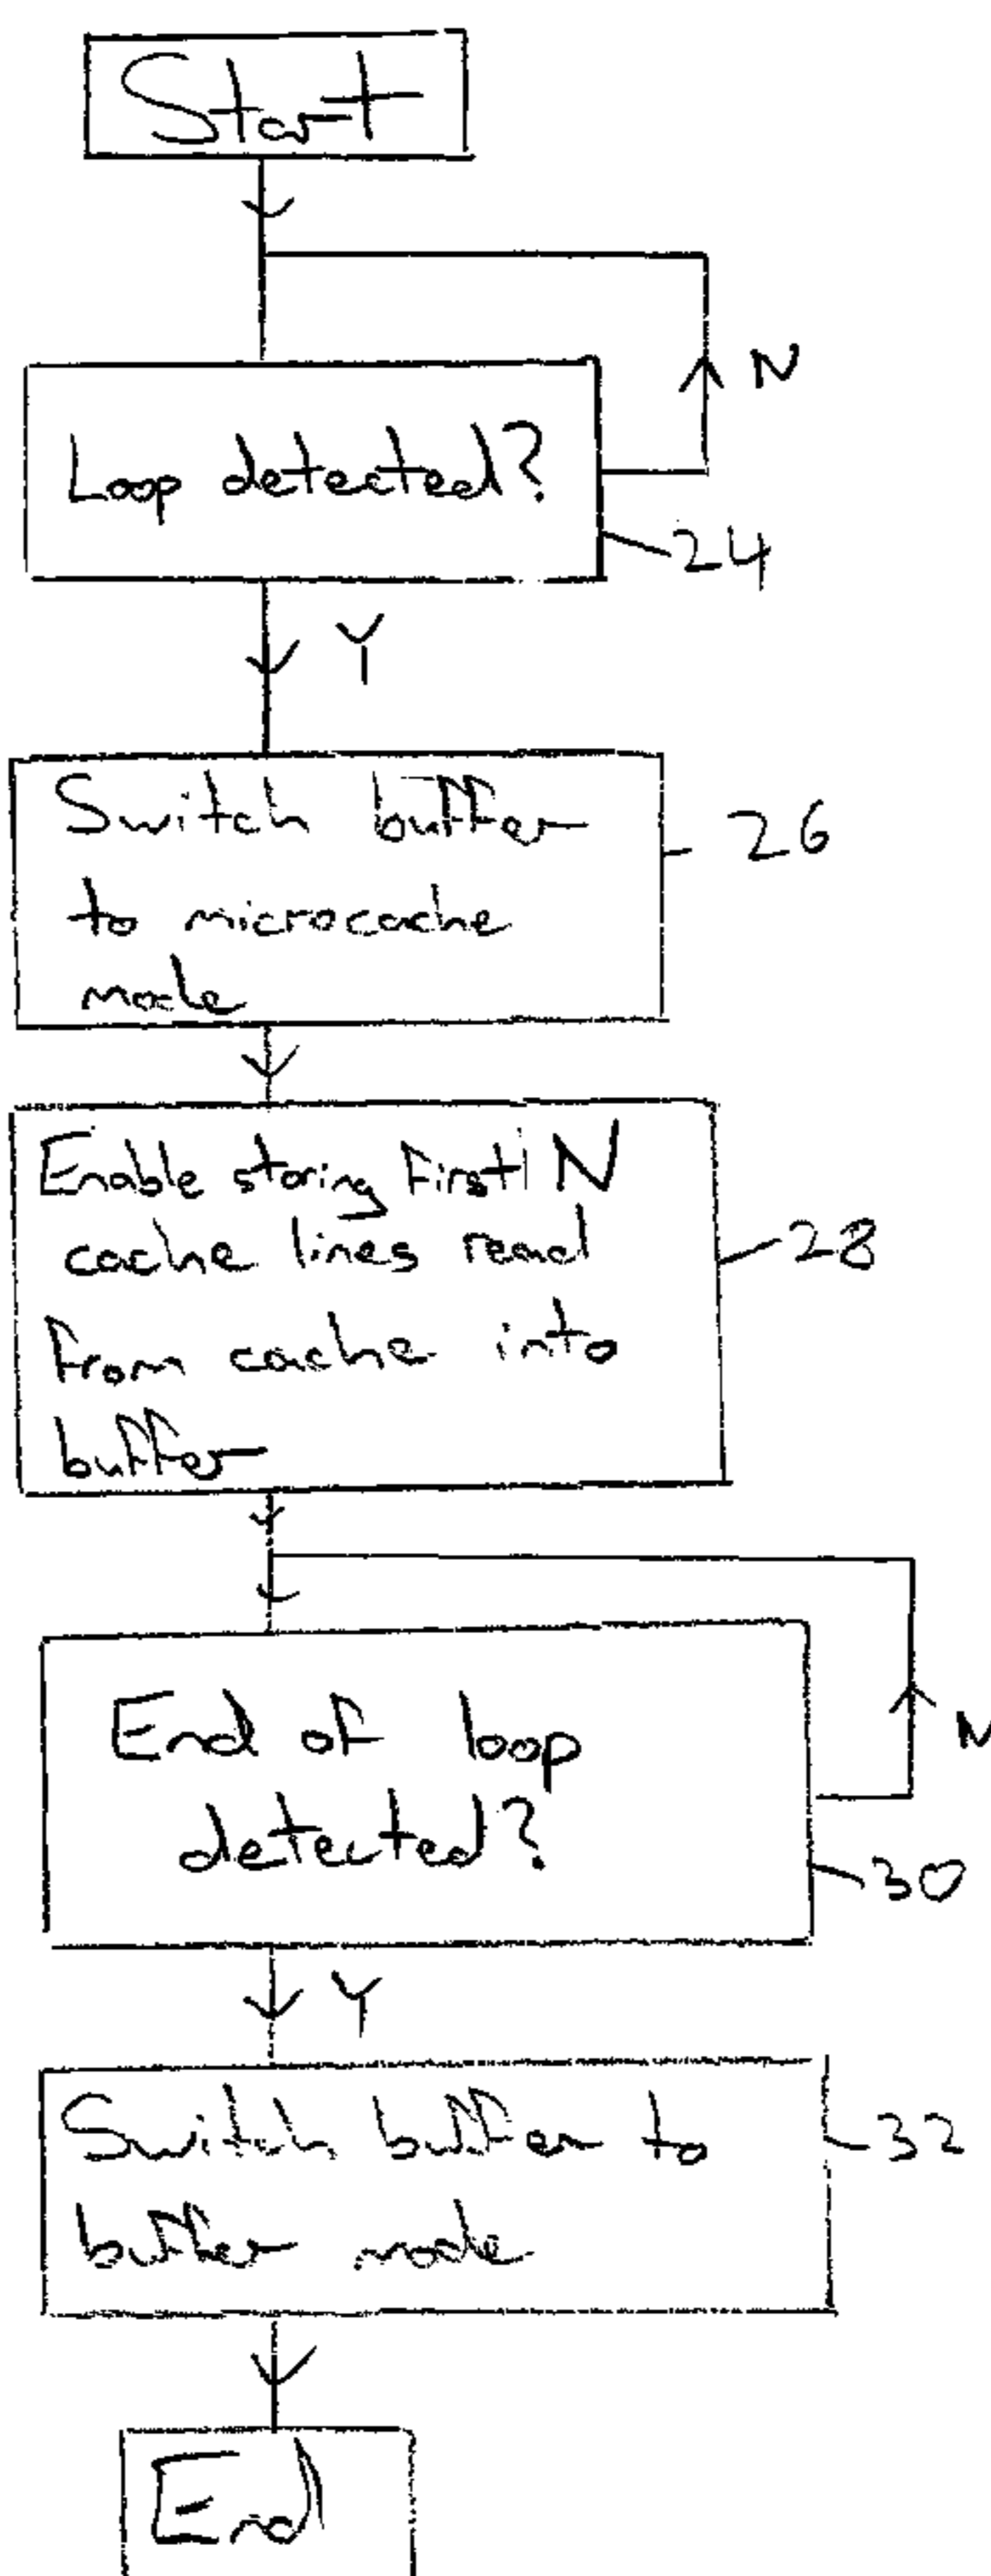 Start
N
Loop detected?
24
Y
Switch buffer
26
to microcache
mode
Enable storing first N
cache lines read
28
from cache into
buffer
End of loop
N
detected?
30
Y
Switch buffer to
32
buffer mode
End